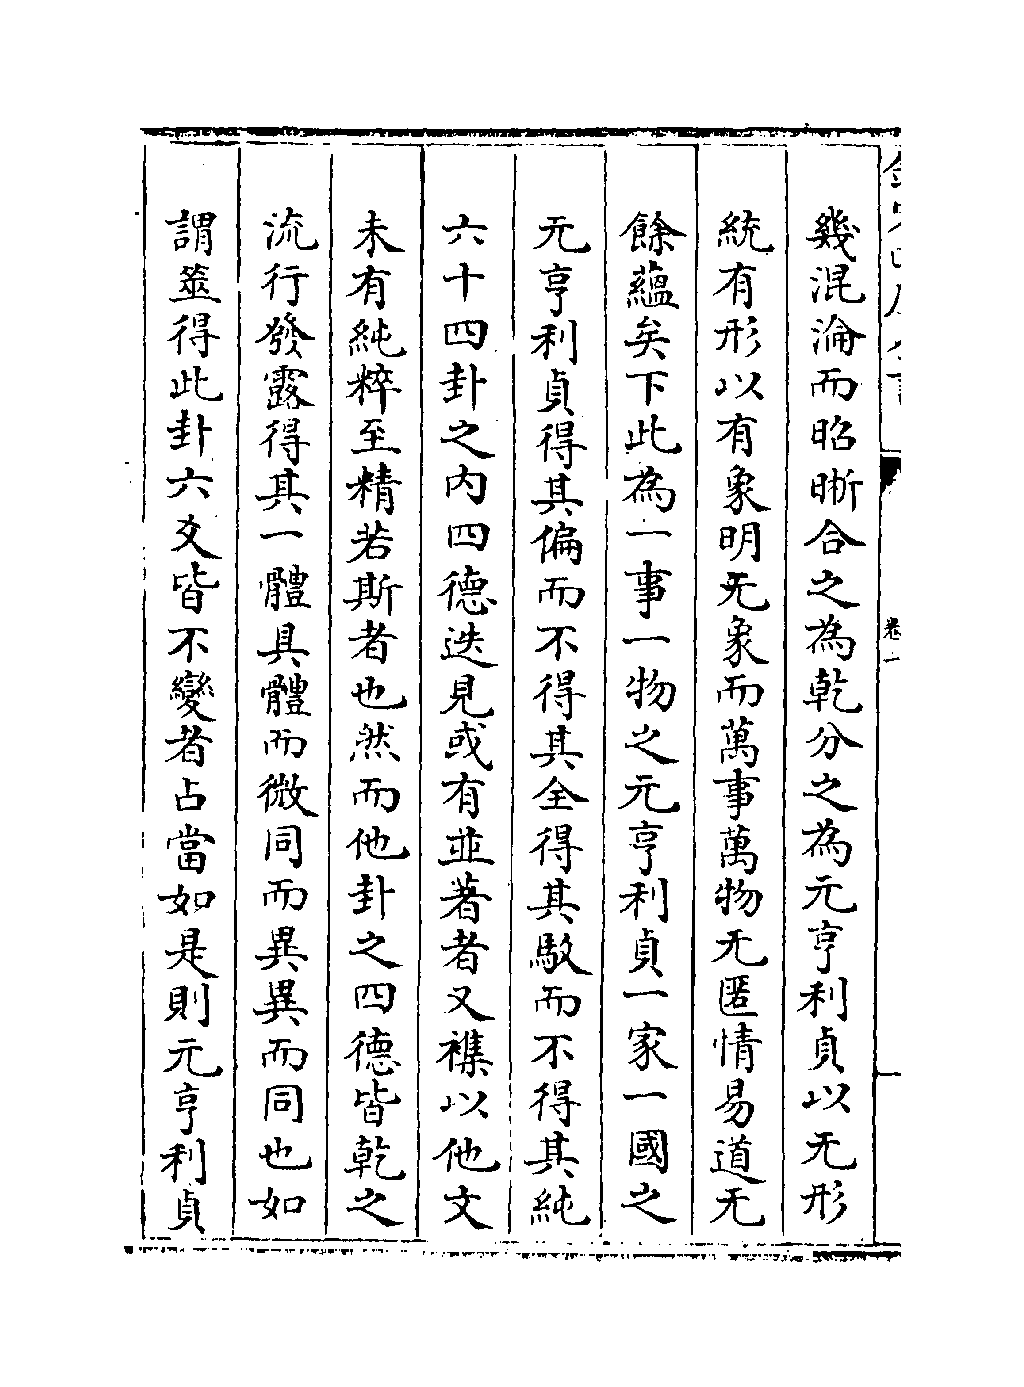 幾混淪而昭晣合之為乾分之為元亨利貞以无形
統有形以有象明无象而萬事萬物无匿情易道无
餘蘊矣下此為一事一物之元亨利貞一家一國之
元亨利貞得其偏而不得其全得其駁而不得其純
六十四卦之内四德迭見或有並著者又襍以他文
未有純粹至精若斯者也然而他卦之四德皆乾之
流行發露得其一體具體而微同而異異而同也如
謂筮得此卦六爻皆不變者占當如是則元亨利貞
卷一